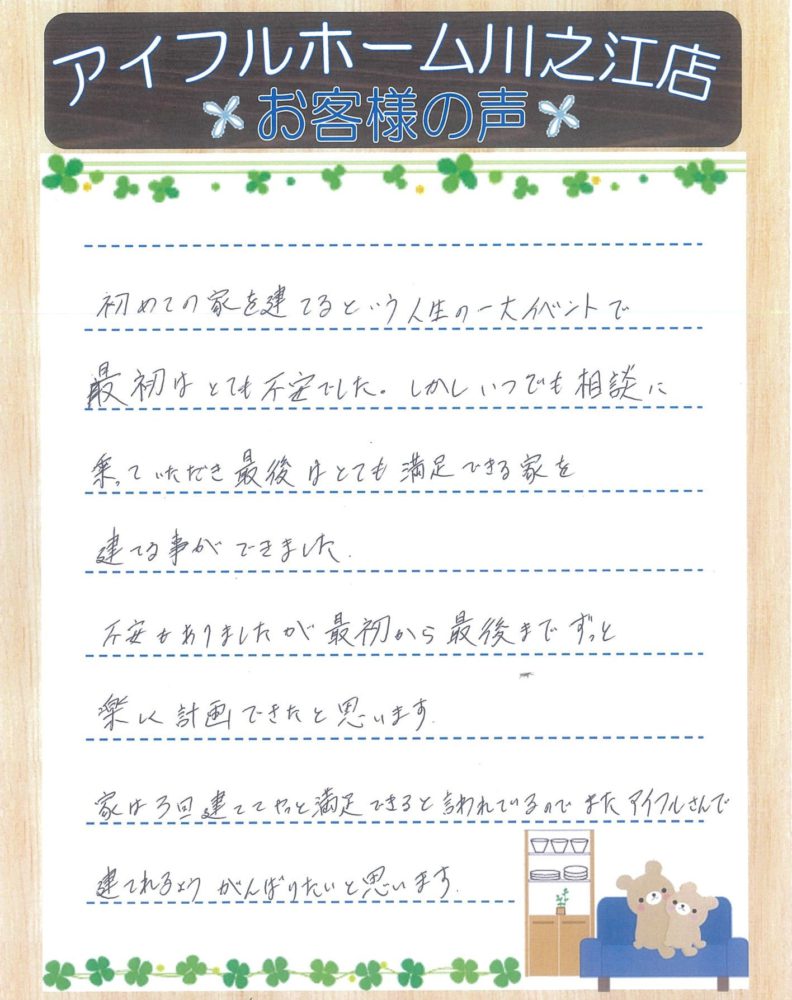 アイフルホーム川之江店
お客様の声
初めての家を建てるという人生の一大イベントで
最初はとても不安でした。しかしいつでも相談に
乗っていただき最後はとても満足できる家を
建てる事ができました.
不安もありましたが最初から最後までずっと
楽しく計画できたと思います.
家は3回建ててやっと満足できると言われているのでまたアイフルさんで
建てれるようがんばりたいと思います.